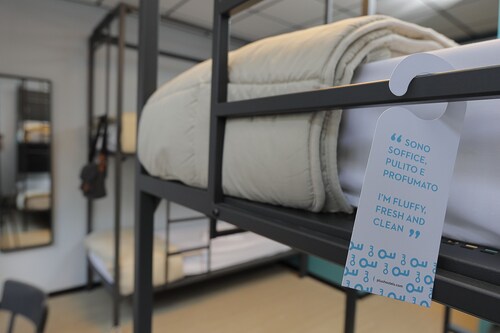 “ SONO
SOFFICE,
PULITO E
PROFUMATO
I'M FLUFFY,
FRESH AND
CLEAN ”